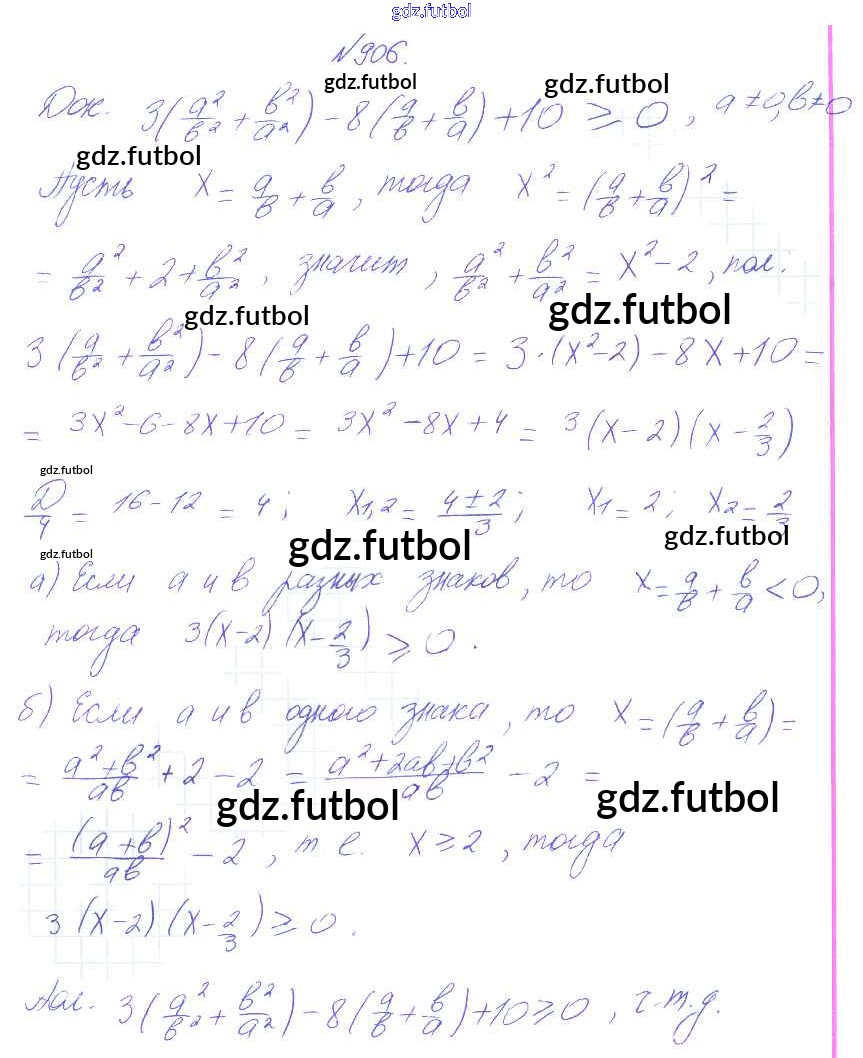 gdz.futbol
№906.
gdz.futbol gdz.futbol
Док. 3(a²/b² + b²/a²) - 8(a/b + b/a) + 10 ≥ 0, a≠0, b≠0
gdz.futbol
Пусть x = a/b + b/a, тогда x² = (a/b + b/a)² =
= a²/b² + 2 + b²/a², значит, a²/b² + b²/a² = x² - 2, пол.
gdz.futbol gdz.futbol
3(a/b² + b²/a²) - 8(a/b + b/a) + 10 = 3·(x²-2) - 8x + 10 =
= 3x² - 6 - 8x + 10 = 3x² - 8x + 4 = 3(x-2)(x - 2/3)
gdz.futbol
D/4 = 16 - 12 = 4; x1,2 = (4±2)/3; x1 = 2; x2 = 2/3
gdz.futbol gdz.futbol
gdz.futbol
а) Если a и b разных знаков, то x = a/b + b/a < 0,
тогда 3(x-2)(x - 2/3) ≥ 0.
б) Если a и b одного знака, то x = (a/b + b/a) =
= (a² + b²)/ab + 2 - 2 = (a² + 2ab + b²)/ab - 2 =
gdz.futbol gdz.futbol
= (a + b)²/ab - 2, т е. x ≥ 2, тогда
3(x-2)(x - 2/3) ≥ 0.
Пол. 3(a²/b² + b²/a²) - 8(a/b + b/a) + 10 ≥ 0, ч.т.д.